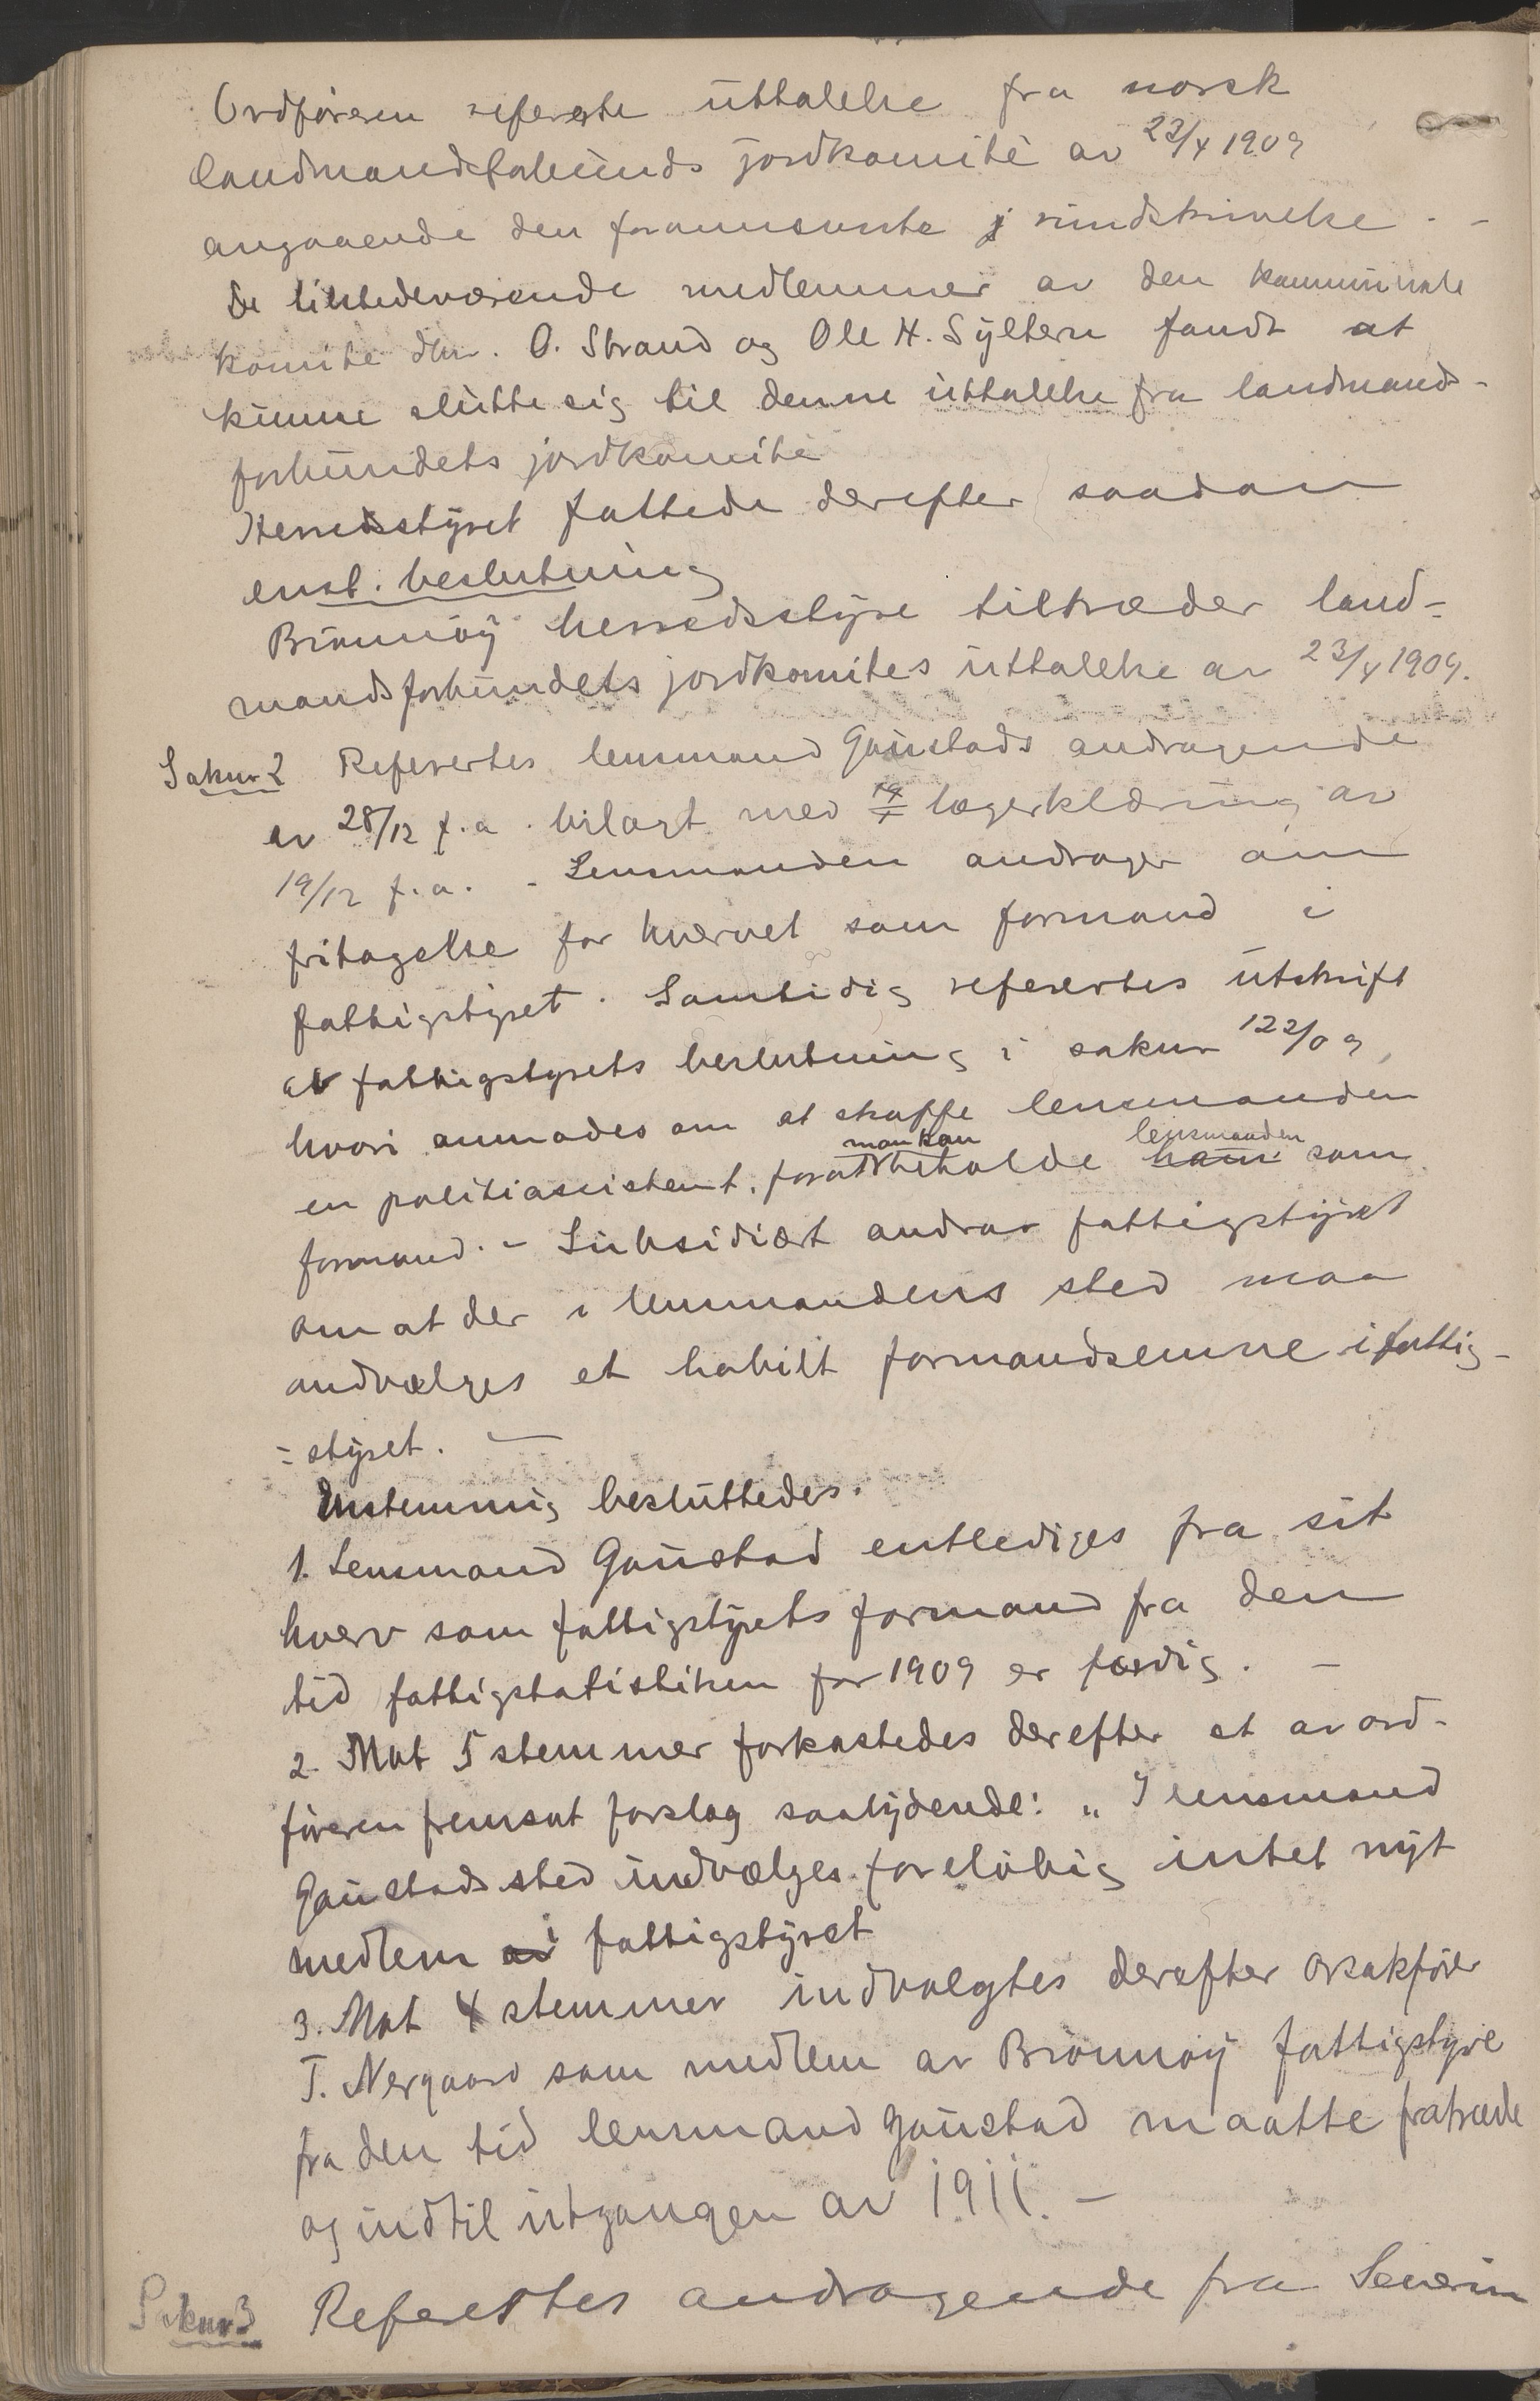 Ordføreren refererte uttalelse fra norsk
landmandsforbunds jordkomité av 23/4 1909
angaaende den forannævnte rundskrivelse. -
De tilstedeværende medlemmer av den kommunale
komite dhr. O. Strand og Ole H. Sylten fandt at
kunne slutte sig til denne uttalelse fra landmands-
forbundets jordkomite
Herredsstyret fattede derefter saadan
enst. beslutning
Brønnøy herredsstyre tiltræder land-
mandsforbundets jordkomites uttalelse av 23/4 1909.
Saknr 2 Refertes lensmand Gaustads andragende
av 28/12 f.a. bilagt med lægerklæring av
19/12 f.a. - Lensmanden andrager om
fritagelse for hvervet som formand i
fattigstyret. Samtidig refertes utskrift
av fattigstyrets beslutning i saknr 122/09,
hvori anmodes om at skaffe lensmanden
en politiassistent, forat man kan beholde lensmanden som
formand. - Subsidiært androv fattigstyret
om at der i lensmandens sted maa
andvælges et habilt formandsemne i fattig-
-styret. -
Enstemmig besluttedes.
1. Lensmand Gaustad entlediges fra sit
hverv som fattigstyrets formand fra den
tid fattigstatistiken for 1909 er færdig. -
2. Mot 5 stemmer forkastedes derefter et av ord-
føreren fremsat forslag saalydende: „I lensmand
Gaustads sted indvælges foreløbig intet nyt
medlem i fattigstyret
3. Mot 4 stemmer indvalgtes derefter orsakfører
T. Nergaard som medlem av Brønnøy fattigstyre
fra den tid lensmand Gaustad maatte fratræde
og indtil utgangen av 1911. -
Saknr 3 Refertes andragende fra Severin